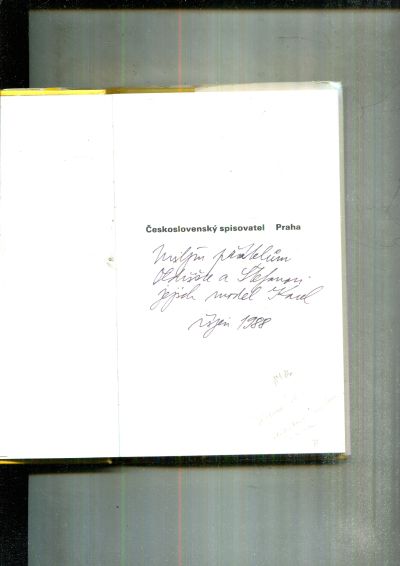 Československý spisovatel Praha
Milým přátelům
a Štefanovi
jejich model Karel
říjen 1988